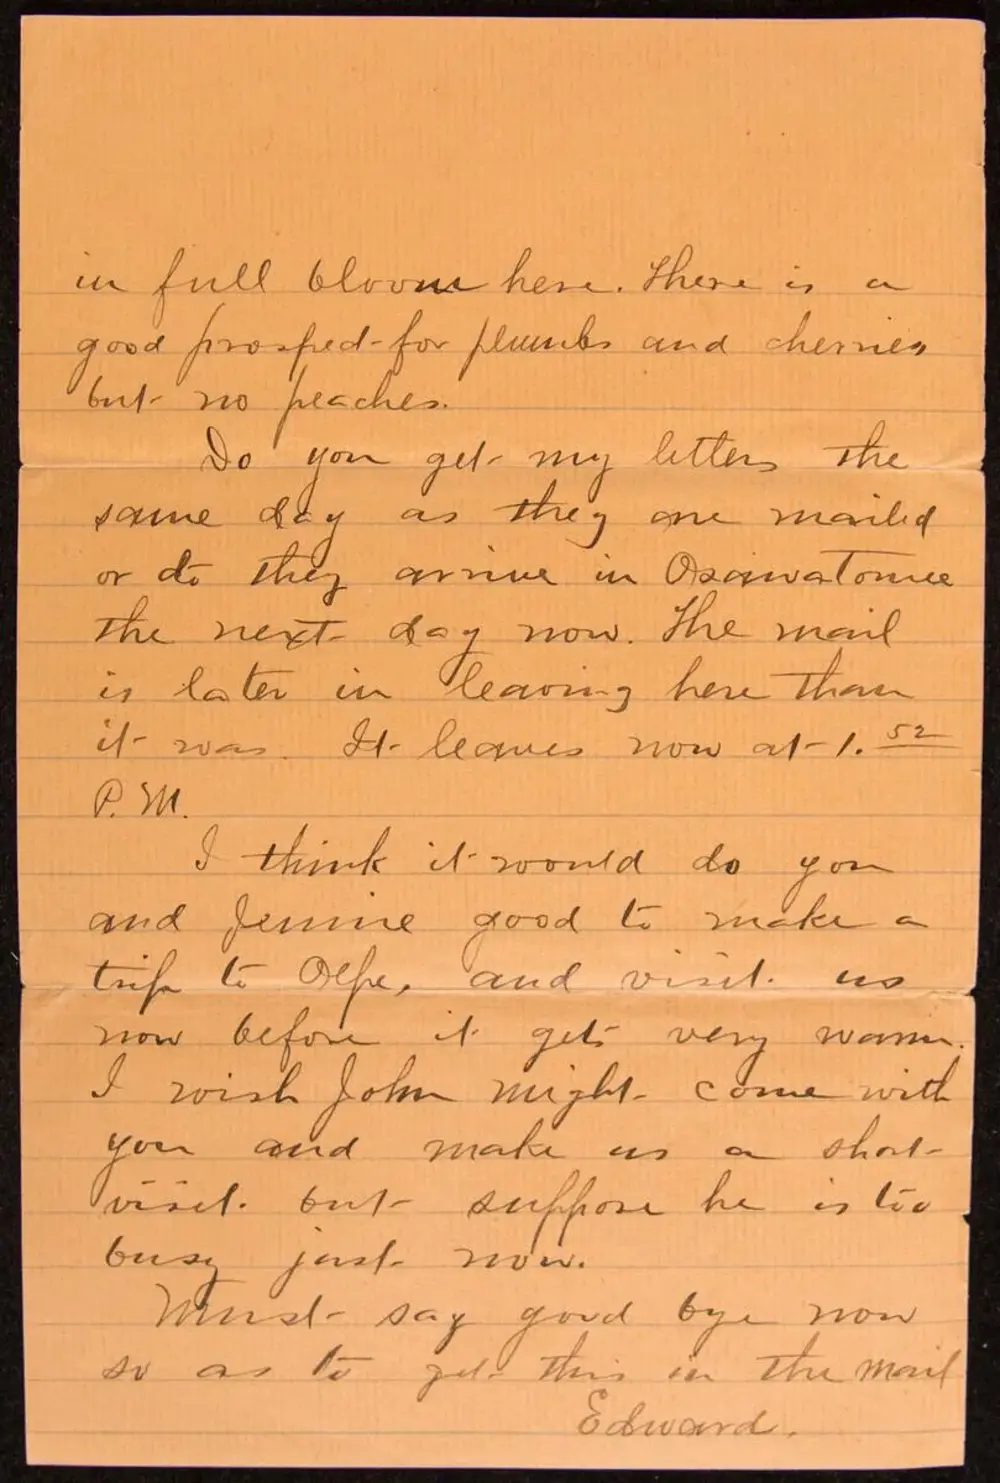 in full bloom here. There is a
good prospect for plumbs and cherries
but no peaches.
Do you get my letters the
same day as they are mailed
or do they arrive in Osawatomee
the next day now. The mail
is later in leaving here than
it was. It leaves now at 1.52
P.M.
I think it would do you
and Jennie good to make a
trip to Olpe, and visit us
now before it gets very warm.
I wish John might come with
you and make us a short
visit but suppose he is too
busy just now.
Must say good bye now
so as to get this in the mail
Edward.